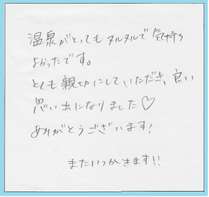 温泉がとってもタルタルで気持ち
よかったです。
とても親切にしていただき、良い
思い出になりました♡
ありがとうございます!
またいつかきます!!